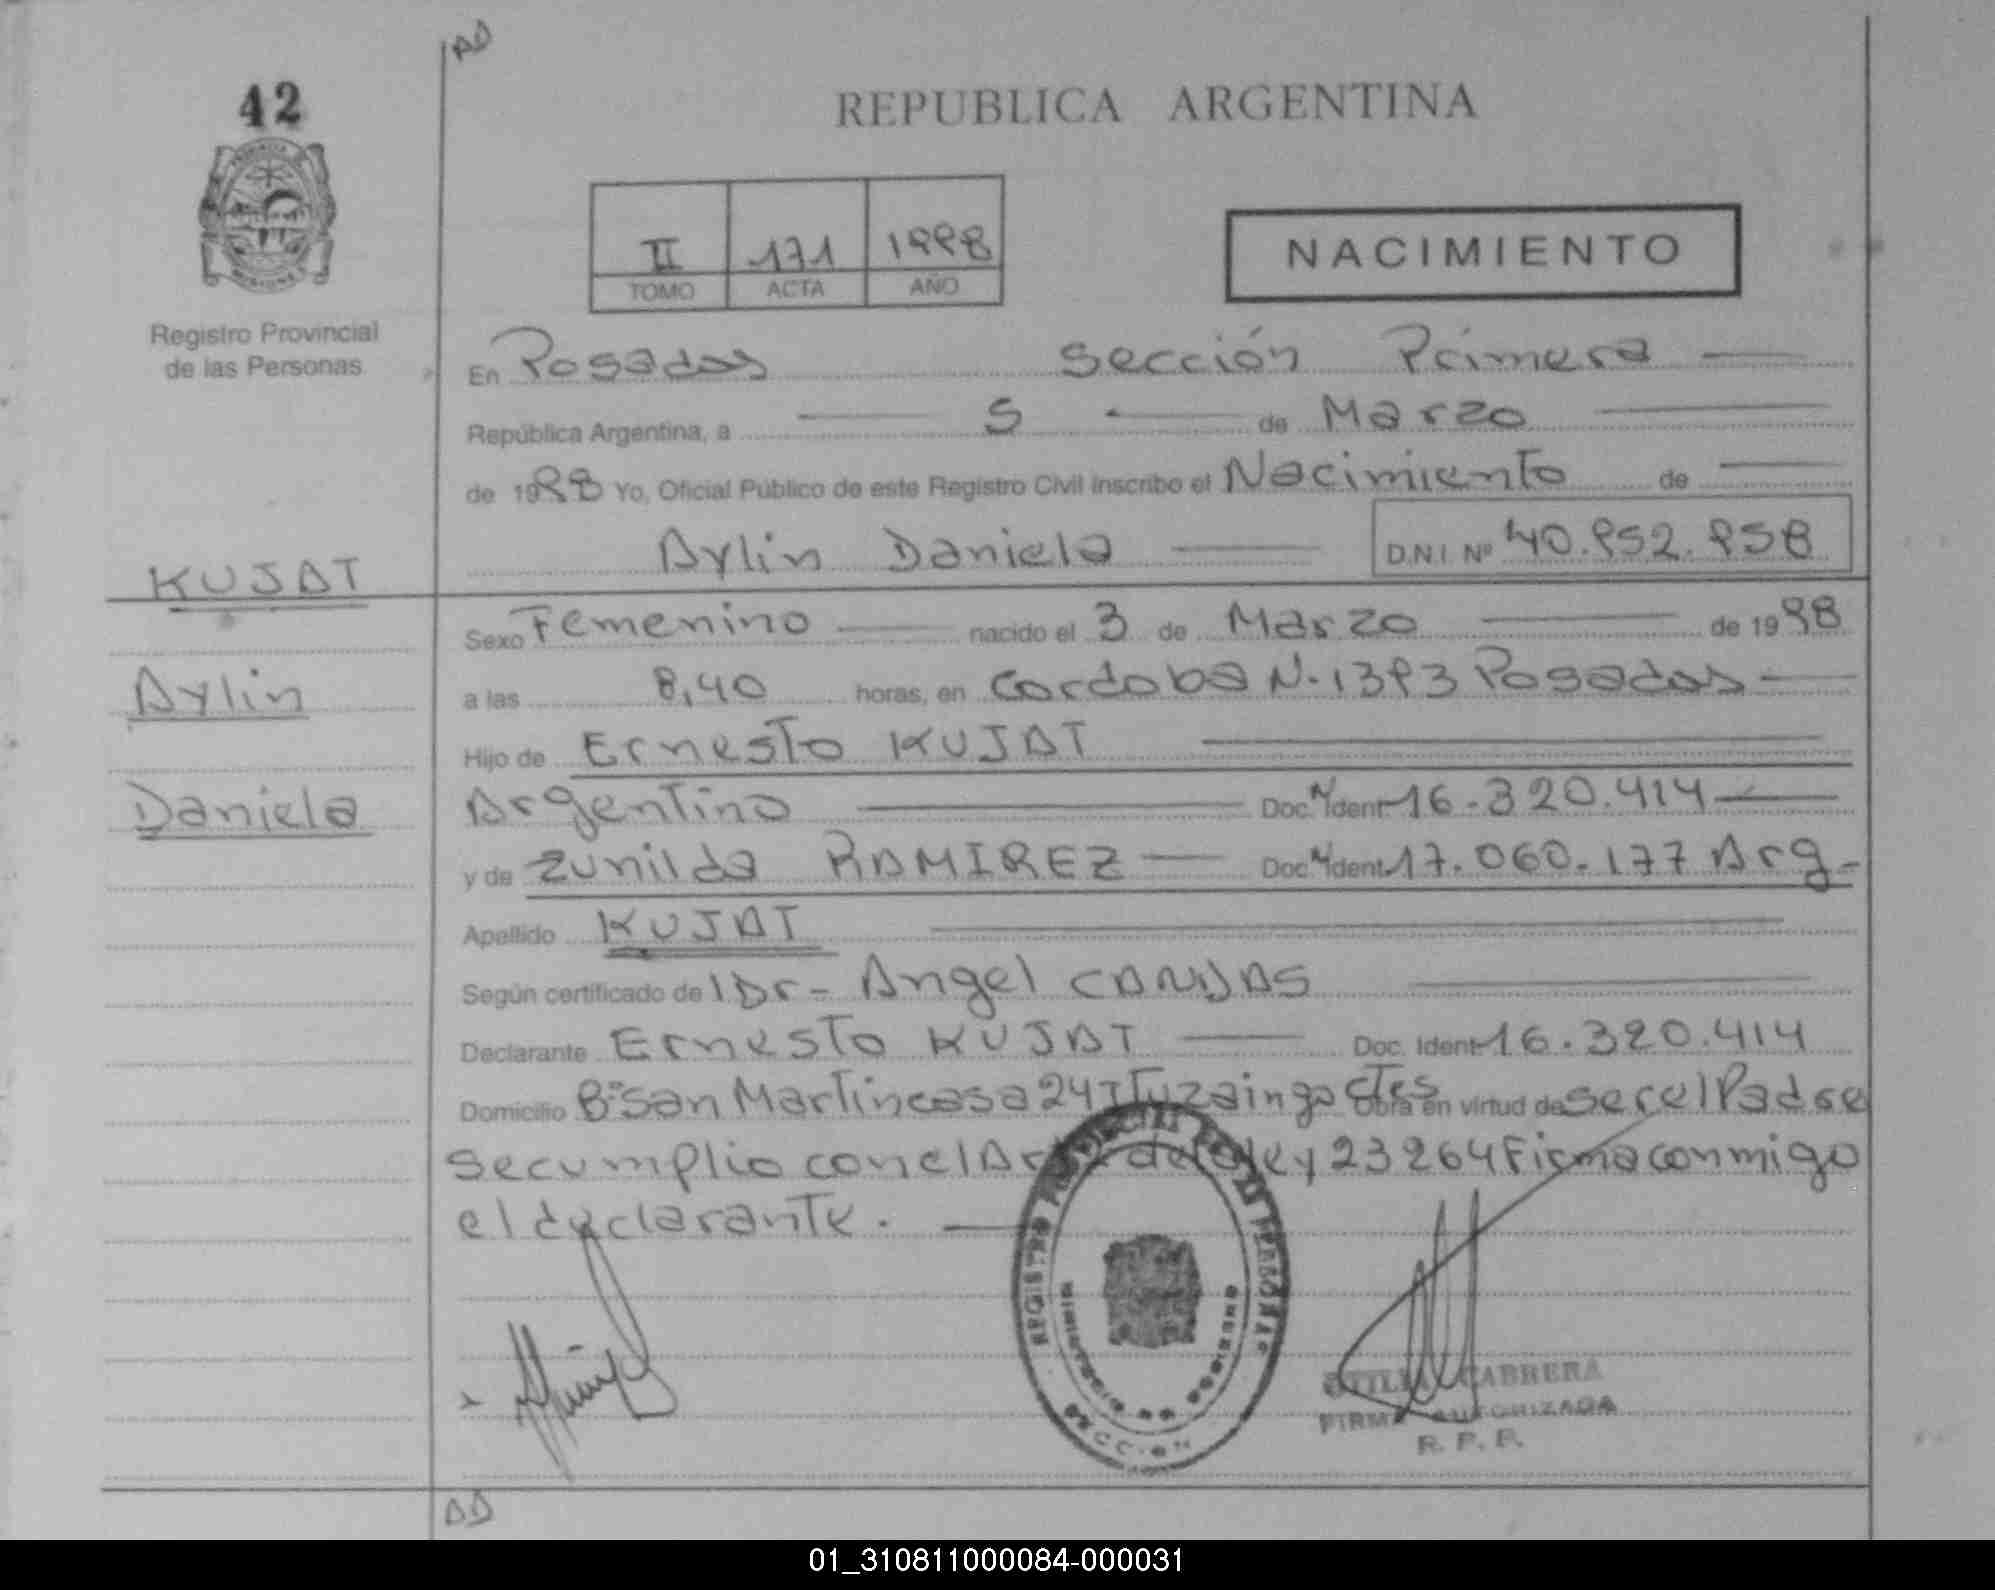 AD
42
REPUBLICA ARGENTINA
II 171 1998
TOMO ACTA AÑO
NACIMIENTO
Registro Provincial
de las Personas
En Posadas Sección Primera
República Argentina, a 5 de Marzo
de 1998 Yo, Oficial Público de este Registro Civil inscribo el Nacimiento de
Aylin Daniela D.N.I. Nº 40.952.958
KUJAT
Sexo Femenino nacido el 3 de Marzo de 1998
Aylin
a las 8,40 horas, en Cordoba N. 1393 Posadas
Hijo de Ernesto KUJAT
Daniela
Argentino Doc. N Ident 16.320.414
y de Zunilda RAMIREZ Doc. N Ident 17.060.177 Arg.
Apellido KUJAT
Según certificado de l Dr. Angel
Declarante Ernesto KUJAT Doc. Ident 16.320.414
Domicilio Bº San Martin casa 247 Ituzaingo Ctes Obra en virtud de ser el Padre
se cumplio con el Art de la Ley 23264 Firma conmigo
el declarante.
REGISTRO PROVINCIAL DE LAS PERSONAS
MINISTERIO DE GOBIERNO
CABRERA
FIRMA AUTORIZADA
R. P. P.
AD
01_310811000084-000031